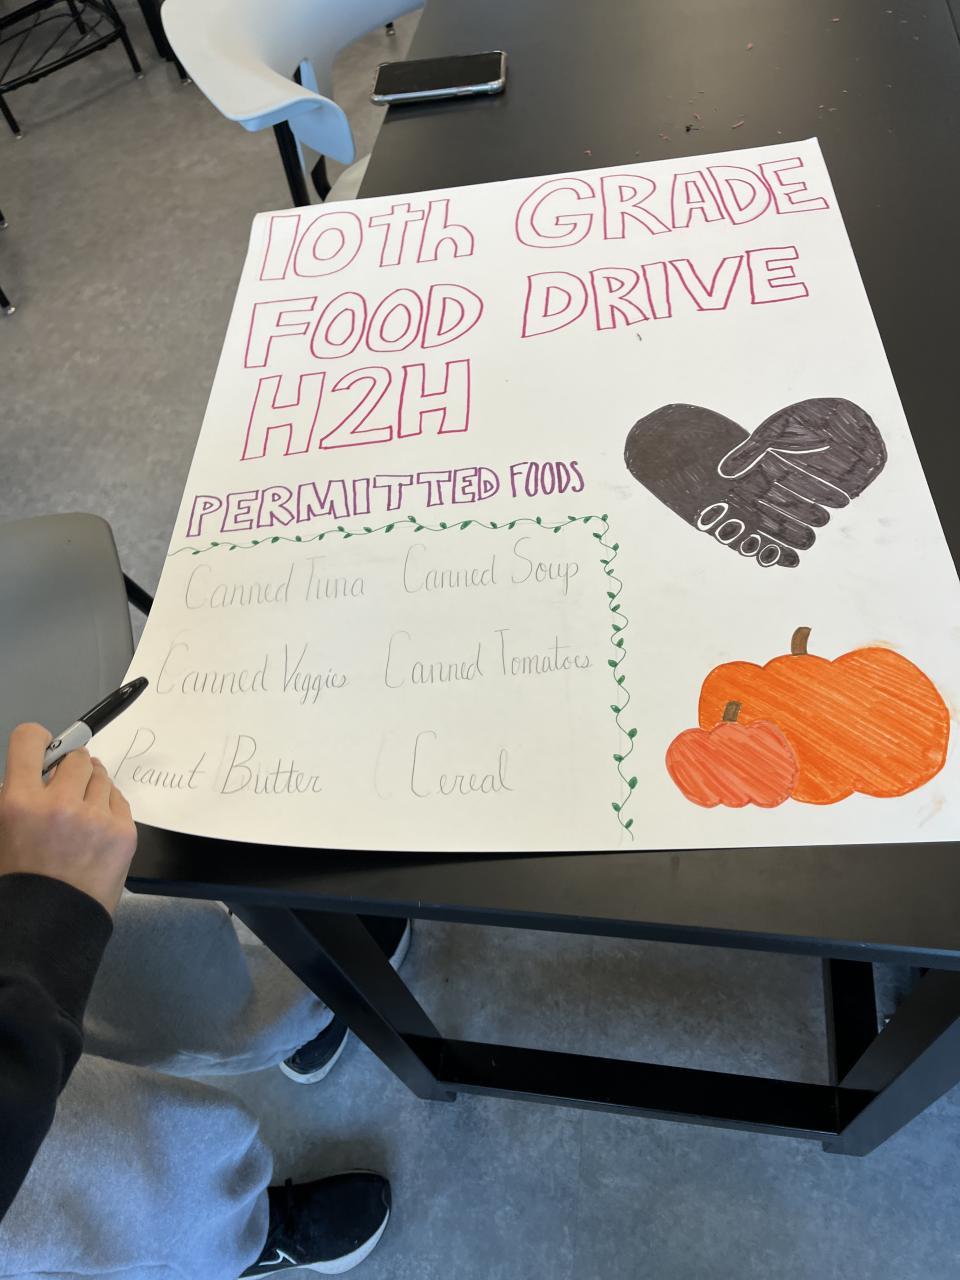 10th GRADE
FOOD DRIVE
H2H
PERMITTED FOODS
Canned Tuna Canned Soup
Canned Veggies Canned Tomatoes
Peanut Butter Cereal